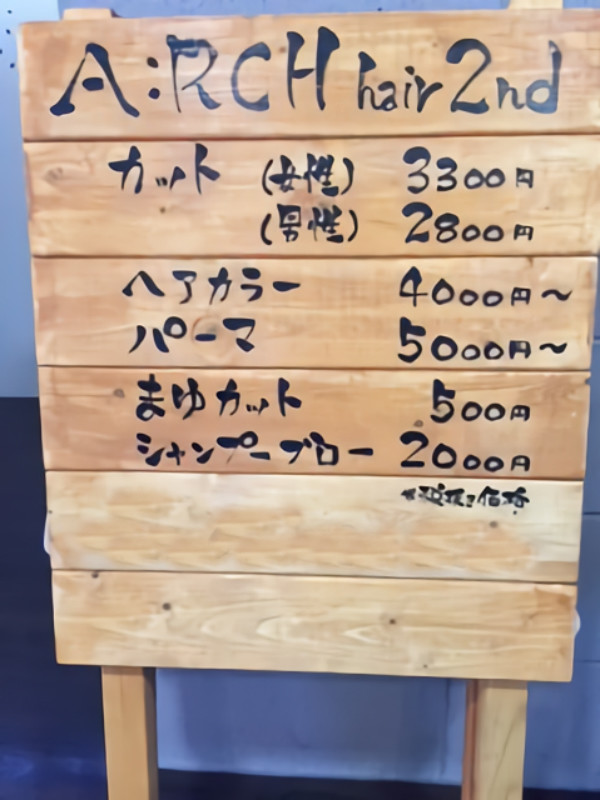 A:RCH hair 2nd
カット (女性) 3300円
(男性) 2800円
ヘアカラー 4000円~
パーマ 5000円~
まゆカット 500円
シャンプーブロー 2000円
※税抜き価格